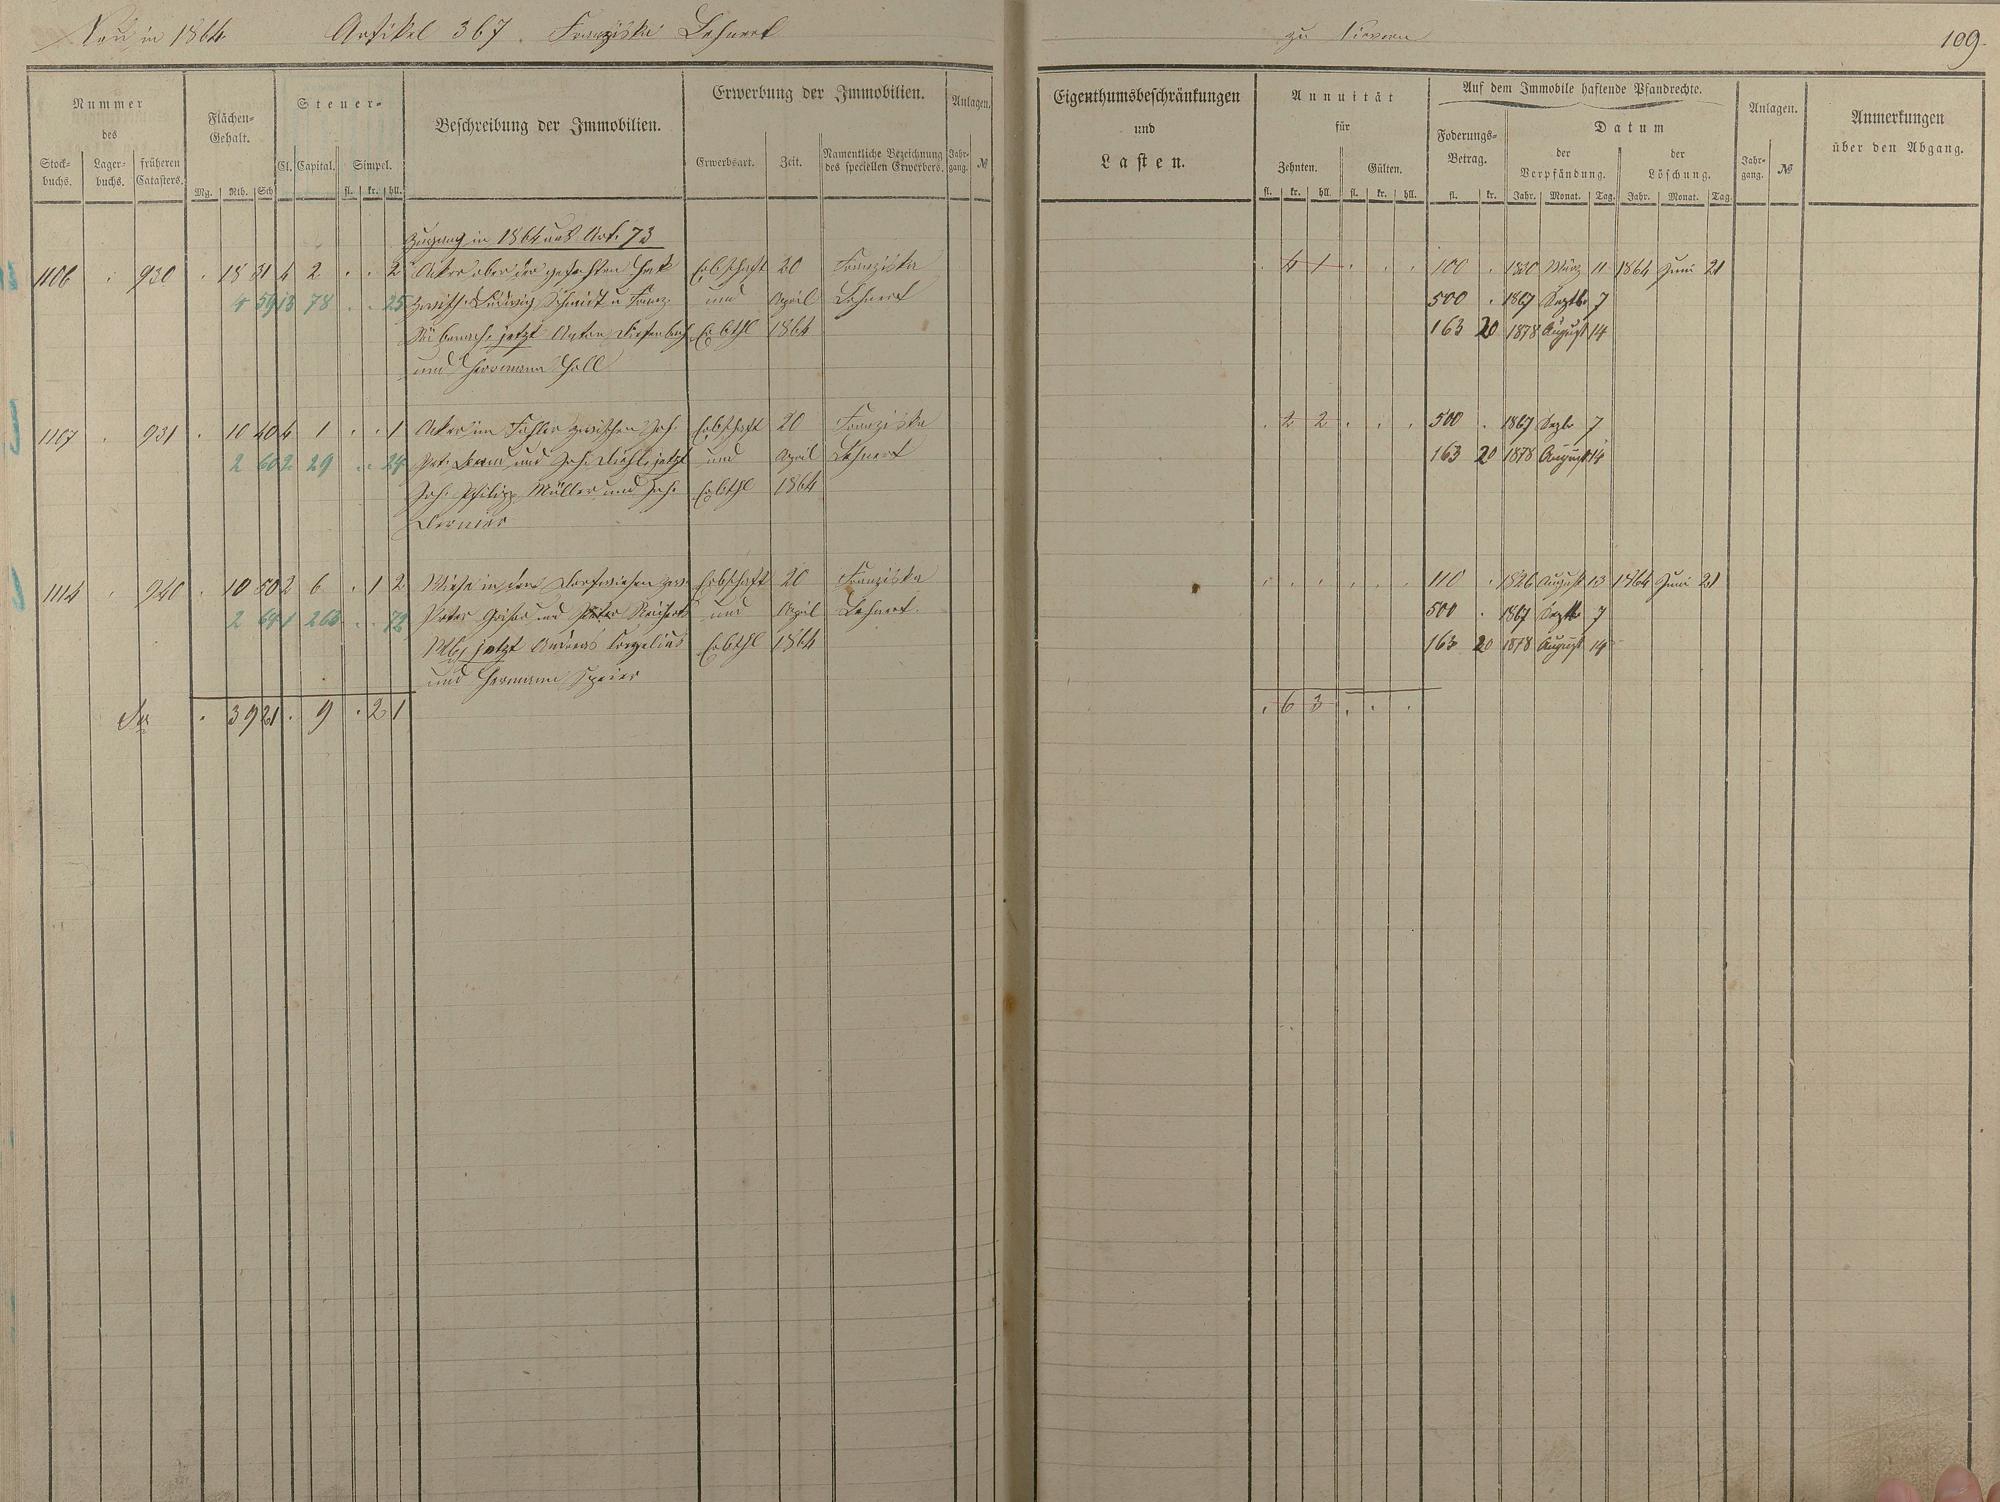 Neu in 1864. Artikel 367. Franziska Lehnert
zu 109.
Nummer des
Stock-buchs. Lager-buchs. früheren Catasters.
Flächen-Gehalt.
Mg. Rth. Sch
Steuer-
Cl. Capital. Simpel.
fl. kr. hll.
Beschreibung der Immobilien.
Erwerbung der Immobilien.
Erwerbsart. Zeit. Namentliche Bezeichnung des speciellen Erwerbers.
Anlagen.
Jahr-gang. №
Eigenthumsbeschränkungen und Lasten.
Annuität für
Zehnten. Gülten.
fl. kr. hll. fl. kr. hll.
Auf dem Immobile haftende Pfandrechte.
Foderungs-Betrag.
fl. kr.
Datum
der Verpfändung. der Löschung.
Jahr. Monat. Tag. Jahr. Monat. Tag.
Anlagen.
Jahr-gang. №
Anmerkungen über den Abgang.
Zugang in 1864 aus Art. 73
1106 . 930 . 18 31 4 2 . . 2 Acker ober der Erbschaft 20 Franziska . 4 1 . . . 100 . 1830 März 11 1864 Juni 21
4 59 78 . . 25 zwisch. Ludwig Schmidt u Franz und April Lehnert 500 . 1867 Septbr 7
jetzt Anton Diefenbach Erbthl 1864 163 20 1878 August 14
und Herrmann Holl
1107 . 931 . 10 40 4 1 . . 1 Acker im zwischen Joh. Erbschaft 20 Franziska . 2 2 . . . 500 . 1867 Septbr 7
2 60 2 29 . . 24 und Joh. jetzt und April Lehnert 163 20 1878 August 14
Joh. Philipp Müller und Joh. Erbthl 1864
1114 . 940 . 10 50 2 6 . 1 2 Wiese in den Dorfwiesen zw. Erbschaft 20 Franziska . . . . . . 110 . 1826 August 13 1864 Juni 21
2 64 1 263 . . 72 Peter und Peter und April Lehnert. 500 . 1867 Septbr 7
jetzt Andreas Erbthl 1864 163 20 1878 August 14
und Hermann Speier
Sa . 39 21 . 9 . 2 1 . 6 3 . . .